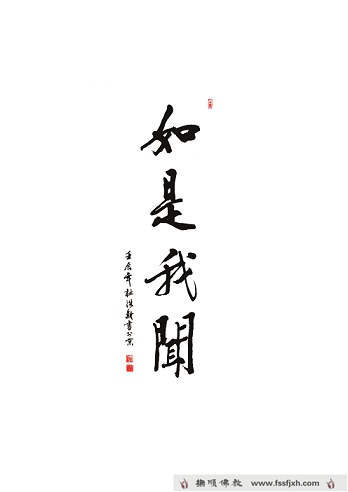 如是我聞
壬辰年
書於京
撫順佛教
www.fssfjxh.com